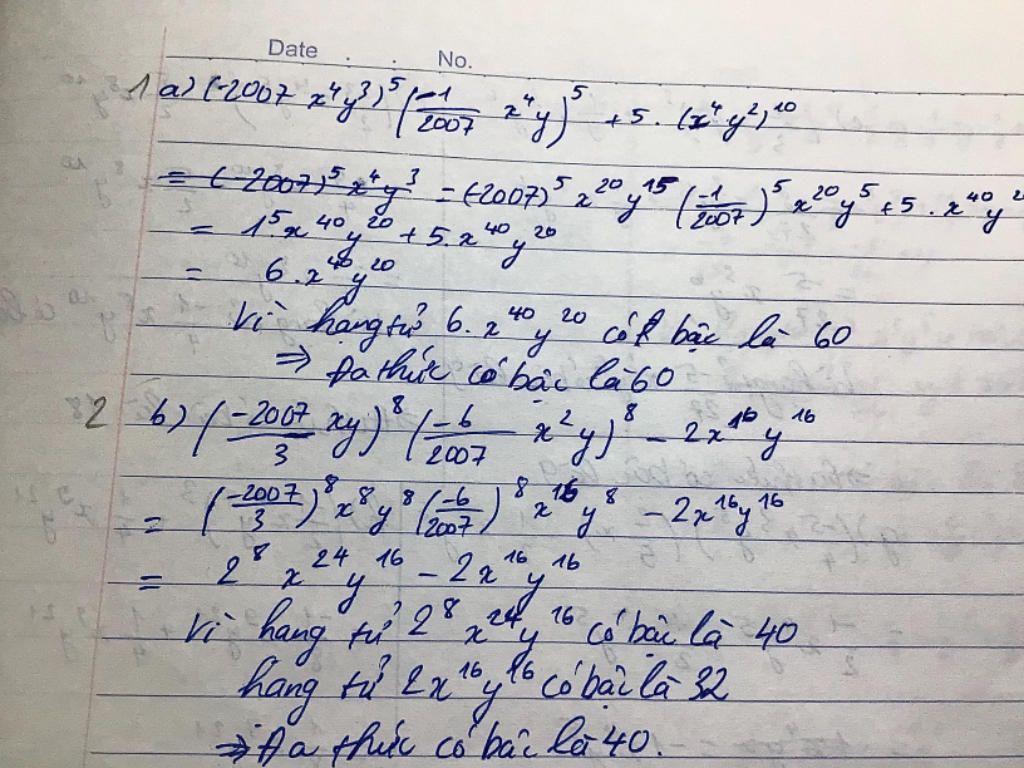 Date : : No.
1 a) (-2007 x⁴y³)⁵ (-1/2007 x⁴y)⁵ + 5. (x⁴y²)¹⁰
= (-2007)⁵ x⁴y³ = (-2007)⁵ x²⁰y¹⁵ (-1/2007)⁵ x²⁰y⁵ + 5. x⁴⁰y
= 1⁵.x⁴⁰y²⁰ + 5.x⁴⁰y²⁰
= 6.x⁴⁰y²⁰
Vì hạng tử 6.x⁴⁰y²⁰ có bậc là 60
⇒ Đa thức có bậc là 60
2 b) (-2007/3 xy)⁸ (-6/2007 x²y)⁸ - 2x¹⁶y¹⁶
= (-2007/3)⁸ x⁸y⁸ (-6/2007)⁸ x¹⁶y⁸ - 2x¹⁶y¹⁶
= 2⁸ x²⁴y¹⁶ - 2x¹⁶y¹⁶
Vì hang tử 2⁸ x²⁴y¹⁶ có bậc là 40
hang tử 2x¹⁶y¹⁶ có bậc là 32
⇒ Đa thức có bậc là 40.